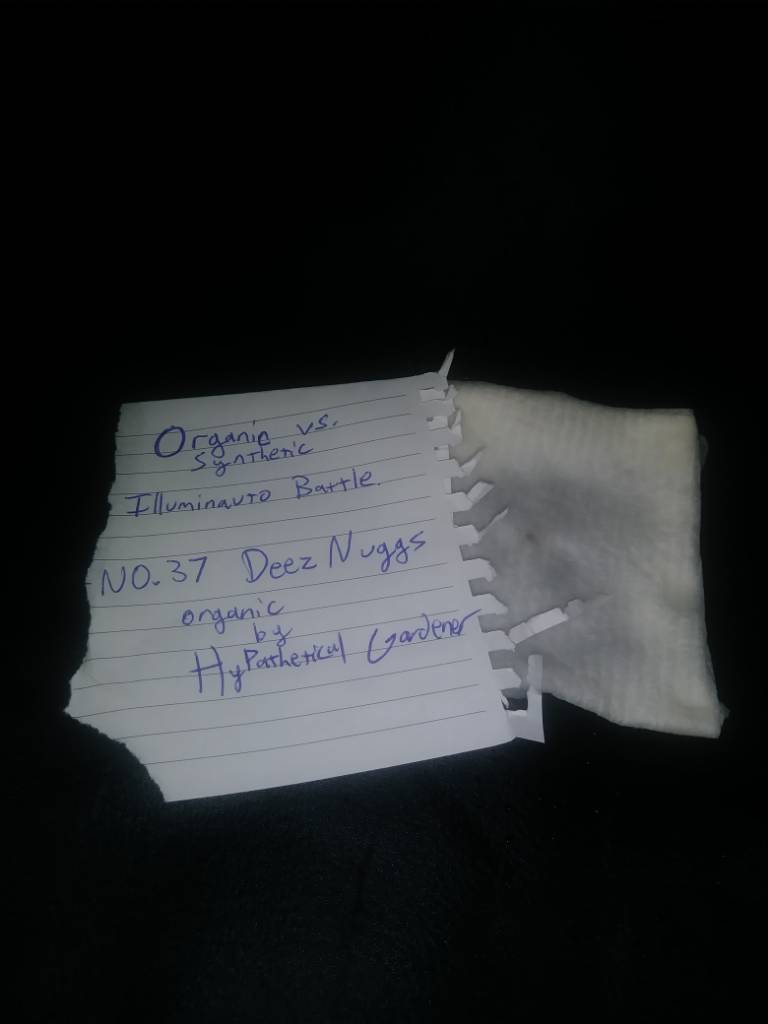 Organic vs.
Synthetic
Illuminauto Battle.
NO.37 Deez Nuggs
organic
by
HyPathetical Gardener